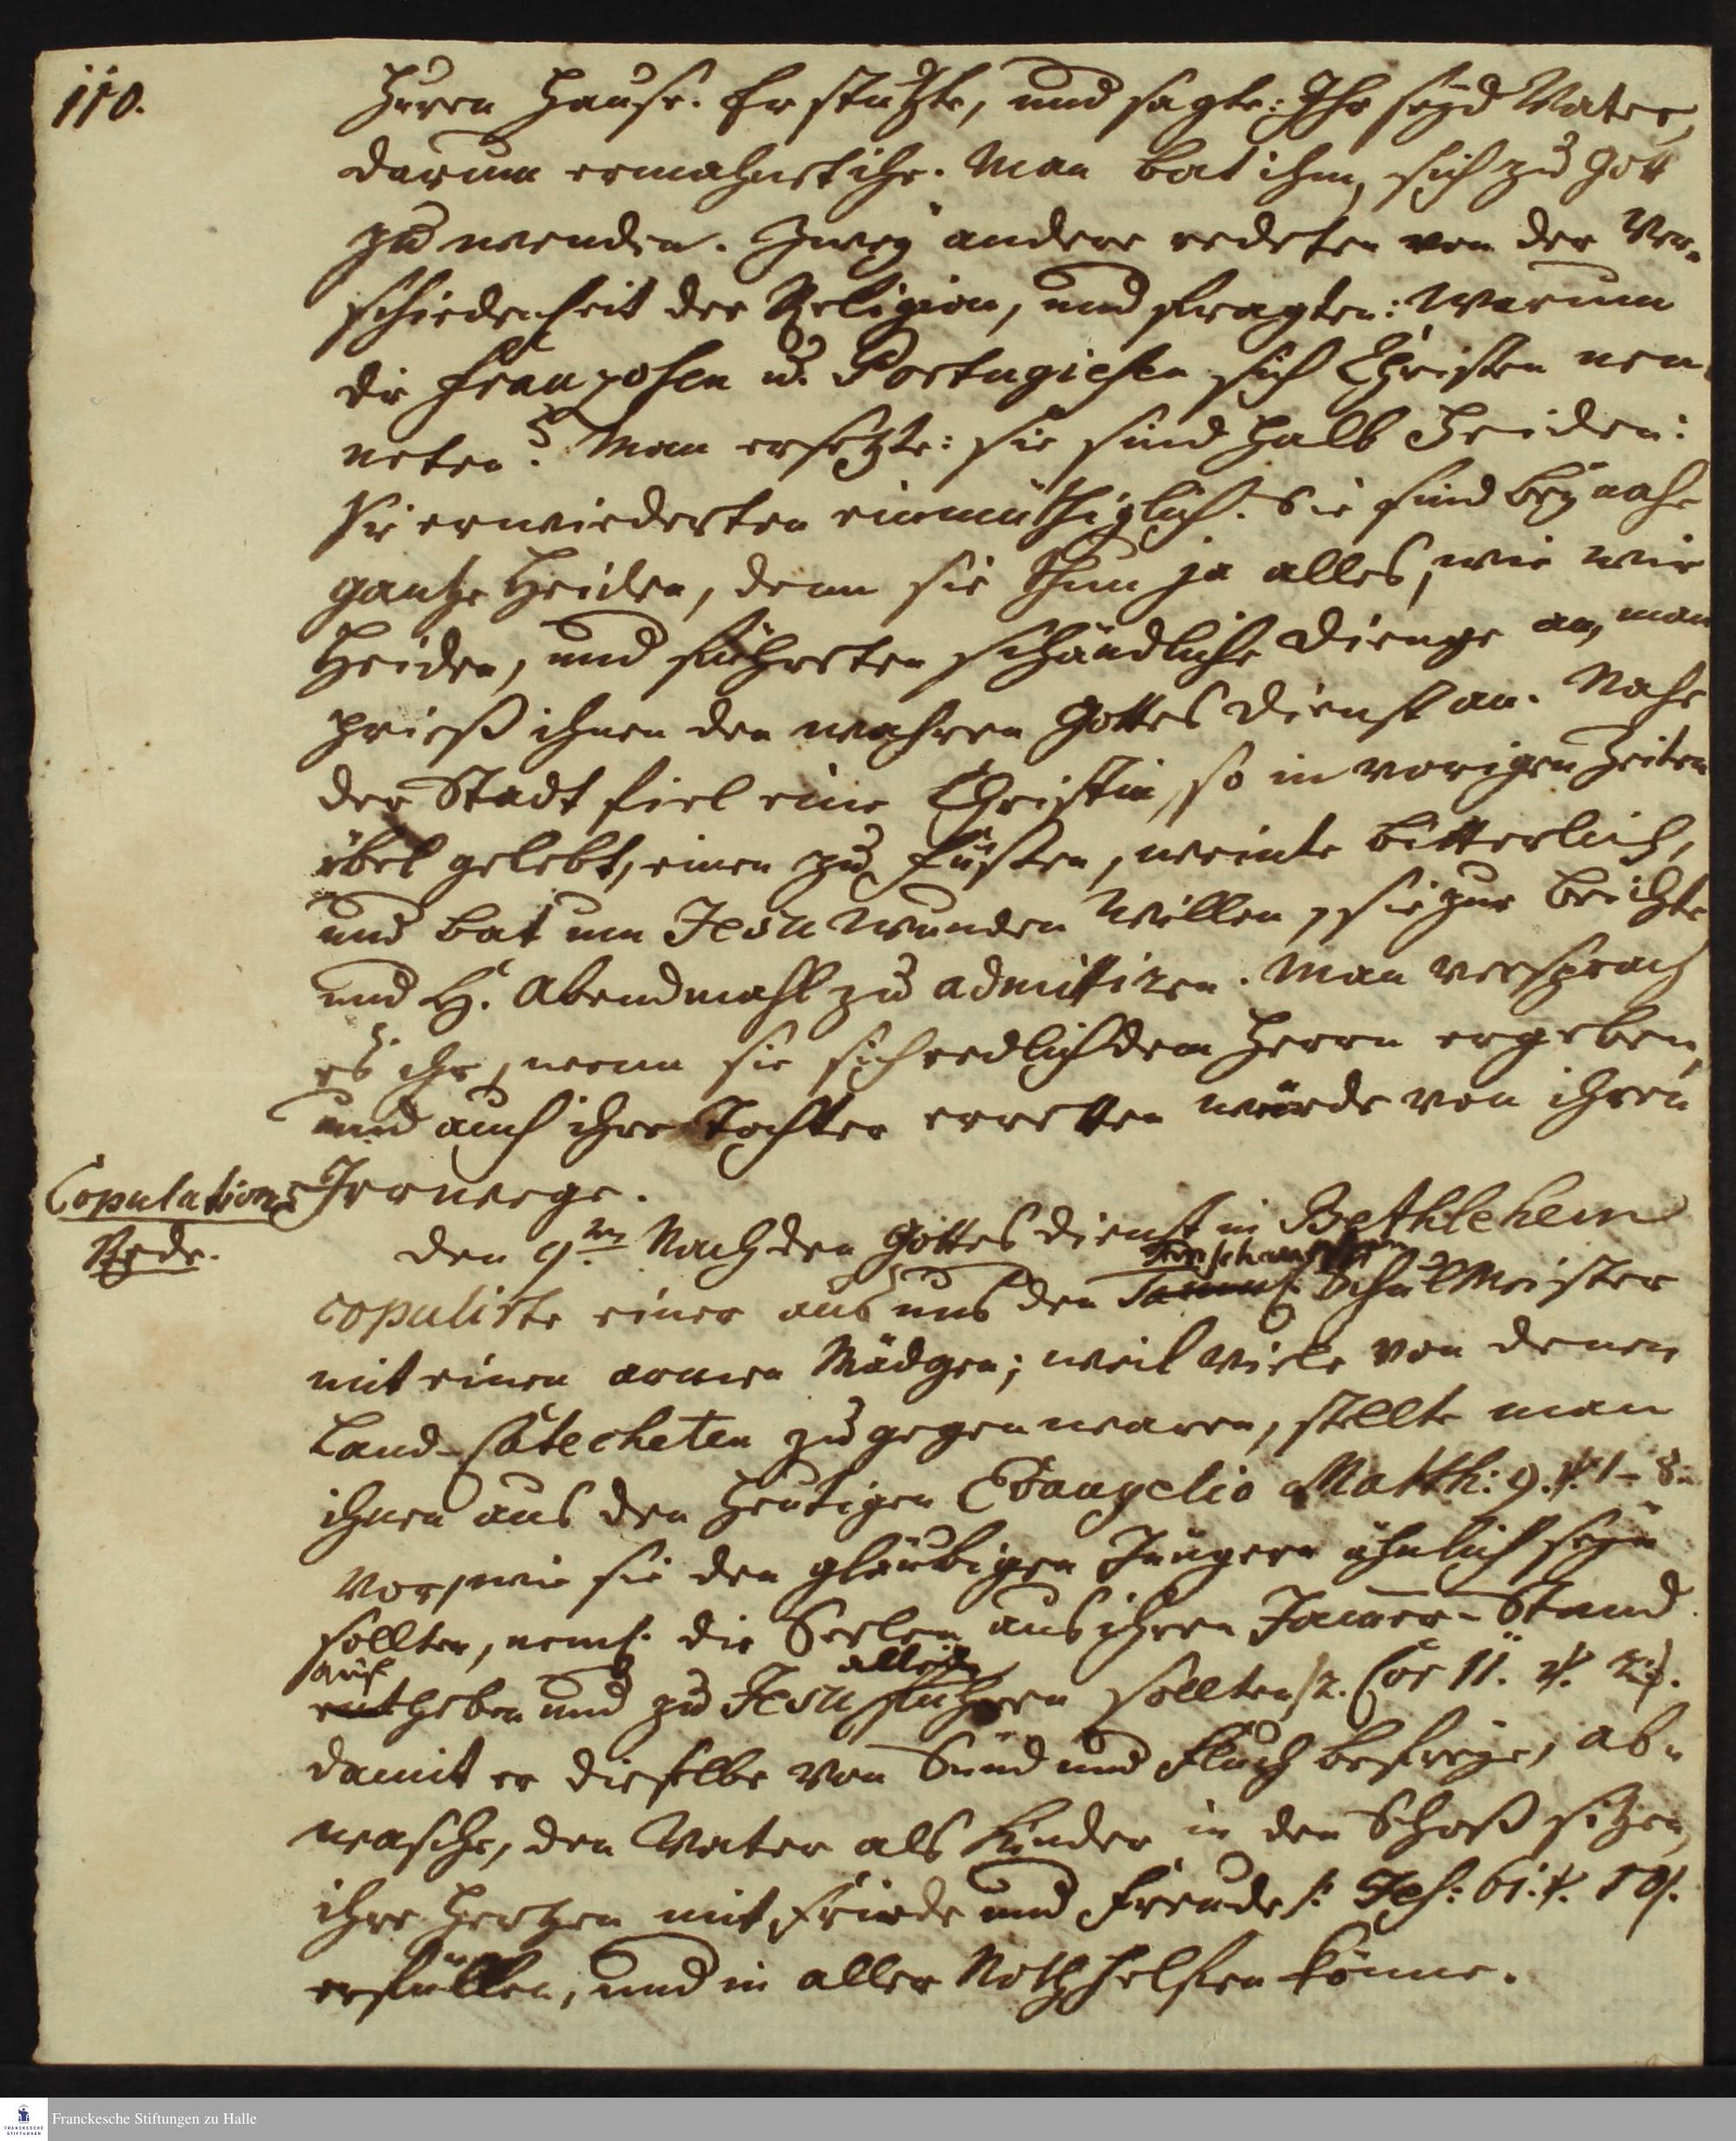 110.
Huren Hause. Er stutzte, und sagte: Ihr seyd Vater,
darum ermahnet ihr. Man bat ihm, sich zu Gott
zu wenden. Zwey andere redeten von der Ver-
schiedenheit der Religion, und fragten: Warum
die Franzosen u. Portugiesen sich Christen nen-
neten? Man ersetzte: sie sind halb Heiden:
Sie erwiederten einmüthiglich: Sie sind beynahe
gantze Heiden, denn sie thun ja alles, wie wir
Heiden, und führeten schändliche Dienge an, man
prieß ihnen den wahren Gottes Dienst an. Nahe
der Stadt fiel eine Christin, so in vorigen Zeiten
übel gelebt, einen zu Füßen, weinte bitterlich,
und bat um Jesu Wunden Willen, sie zur Beichte
und H. Abendmahl zu admittiren. Man versprach
es ihr, wenn sie sich redlich dem Herrn ergeben,
und auch ihre Tochter erretten würde von ihren
Irrwege.
Copulations
Rede.
Den 9ten Nach den Gottes Dienst in Bethlehem
copulirte einer aus uns den SchulMeister
mit einen armen Mädgen; weil viele von denen
Land-Catecheten zugegen waren, stellte man
ihnen aus den heutigen Evangelio Matth: 9. v. 1-8.
vor, wie sie den gläubigen Trägern ähnlich seyn
sollten, neml. die Seelen aus ihren Jammer-Stand
auf
allein
heben und zu Jesu führen sollten, 2. Cor 11. v. 2.
damit er dieselbe von Sünd und Fluch befreye, ab-
wasche, den Vater als Kinder in den Schoß setzen,
ihre Hertzen mit Friede und Freude /: Jes: 61. v. 10/.
erfüllen, und in aller Noth helfen könne.
Franckesche Stiftungen zu Halle
FRANCKESCHE
STIFTUNGEN